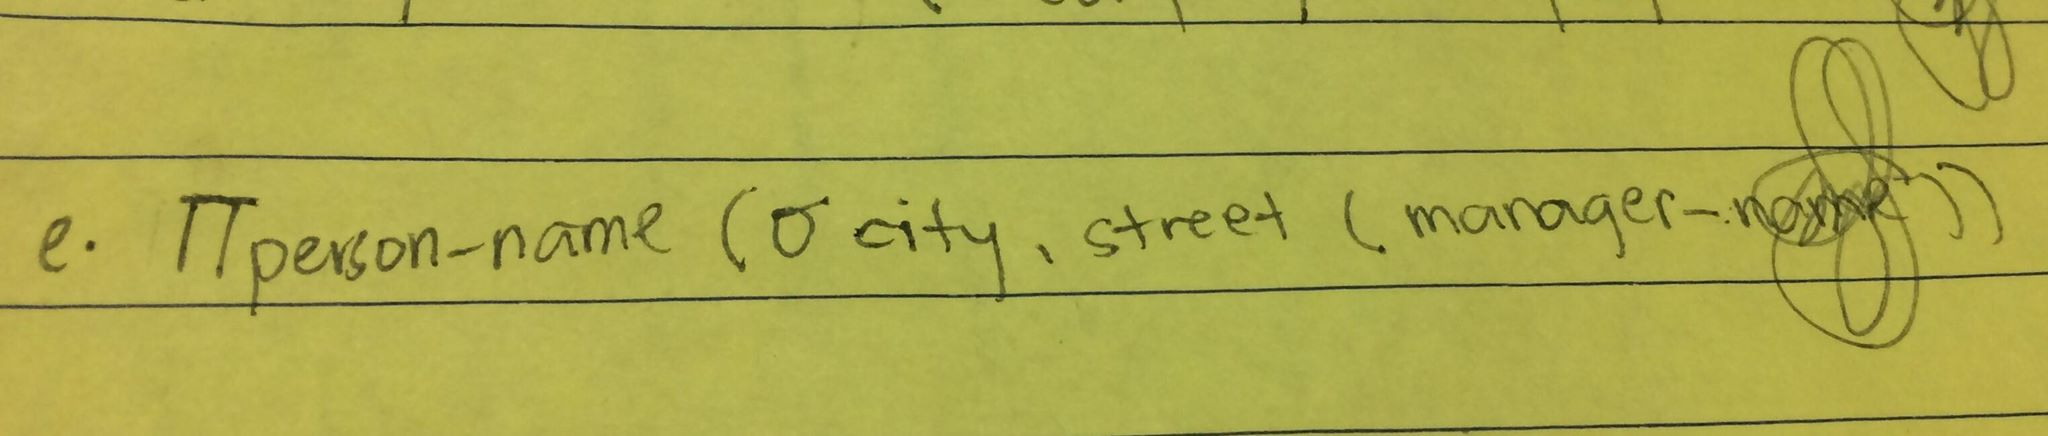 e. Π person-name (σ city, street (manager-name))